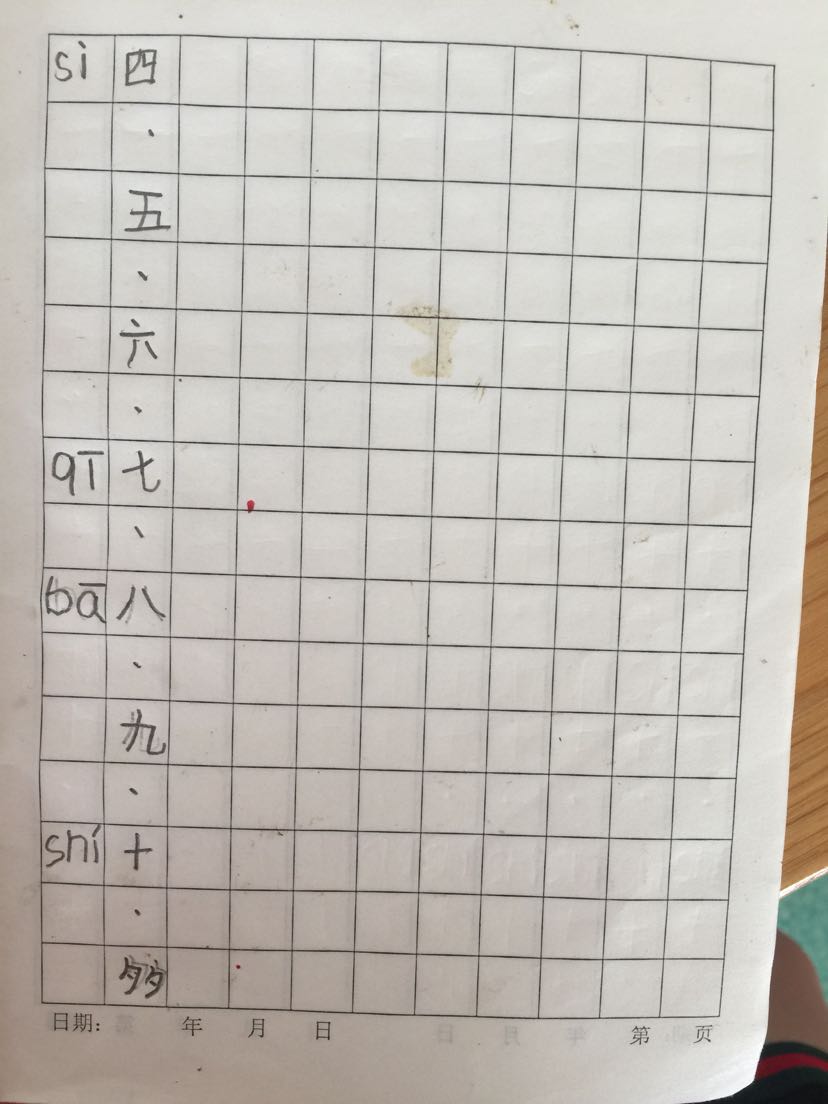 sì 四
、
五
、
六
、
qī 七
、
bā 八
、
九
、
shí 十
、
多
日期： 年 月 日 第 页